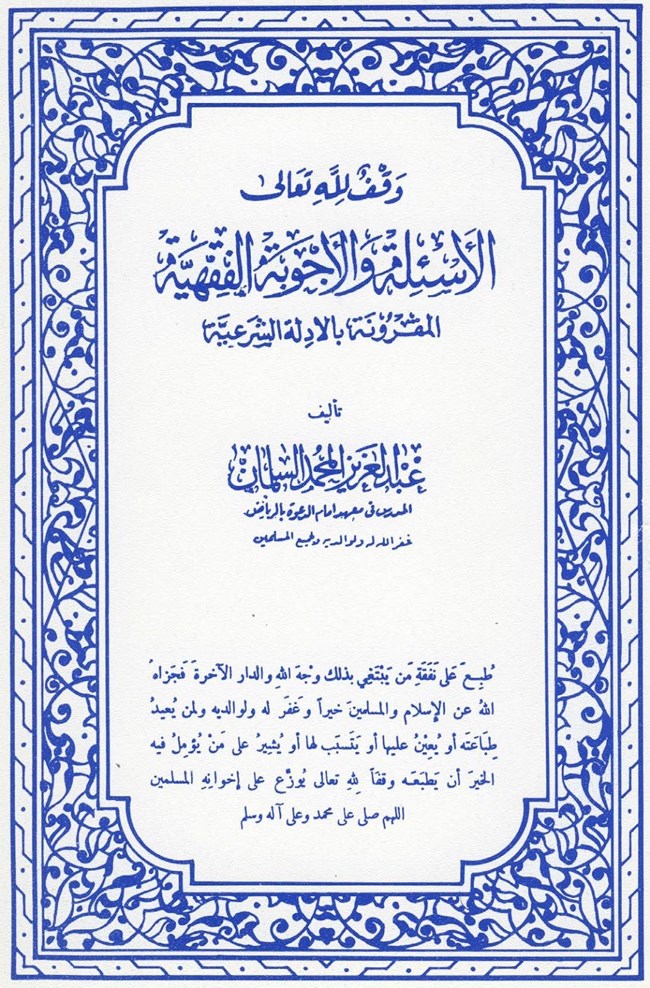 وَقْفٌ لِلَّهِ تَعَالَى
الأَسْئِلَة وَالأَجْوِبَة الفِقْهِيَّة
المَقْرُونَة بِالأَدِلَّة الشَرعِيَّة
تأليف
عَبْد العَزيز المُحمَّد السلمان
المدرس في معهد امام الدعوة بالرياض
غفر الله له ولوالديه ولجميع المسلمين
طُبِعَ عَلى نَفَقَةِ مَن يَبْتَغِي بذلك وجْهَ اللهِ والدار الآخرةَ فَجَزاهُ
اللهُ عن الإسلام والمسلمينَ خيراً وَغَفَرَ له ولوالديه ولمن يُعيدُ
طِبَاعَتَه أو يُعِيْنُ عليها أو يَتَسَبَب لها أو يُشِيرُ على مَنْ يُؤمِلُ فيه
الخيرَ أن يَطبَعَه وقفاً لِلهِ تعالى يُوزَّع على إخوانِهِ المسلمين
اللهم صلى على محمد وعلى آله وسلم